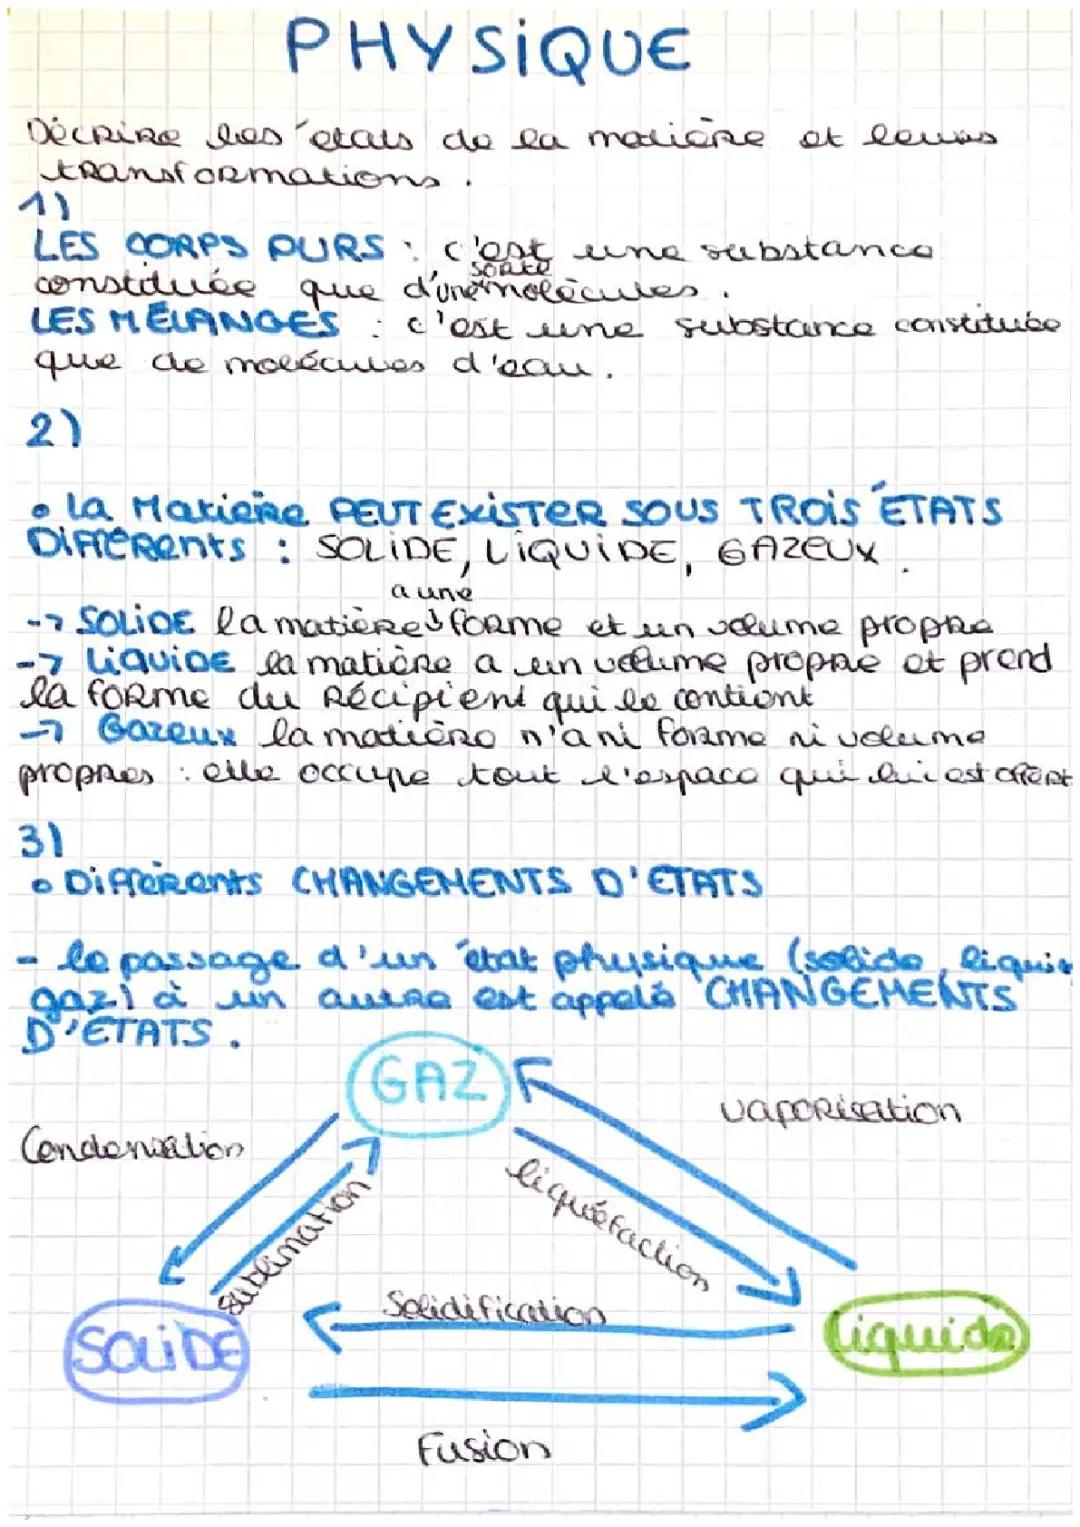 PHYSIQUE
Décrire les états de la matière et leurs
transformations.
1)
LES CORPS PURS : c'est une substance
sorte
constituée que d'une molécules.
LES MÉLANGES : c'est une substance constituée
que de molécules d'eau.
2)
• la Matière PEUT EXISTER SOUS TROIS ÉTATS
DiFFÉRents : SOLIDE, LIQUIDE, GAZEUX.
a une
-> SOLIDE la matière forme et un volume propre
-> LiQUiDE la matière a un volume propre et prend
la forme du Récipient qui le contient
-> Gazeux la matière n'a ni forme ni volume
propres : elle occupe tout l'espace qui lui est offert
3)
• Différents CHANGEMENTS D'ETATS
- le passage d'un état physique (solide, liquide
gaz) à un autre est appelé CHANGEMENTS
D'ÉTATS.
GAZ
vaporisation
Condensation
liquéfaction
sublimation
Solidification
SOLIDE
liquide
Fusion